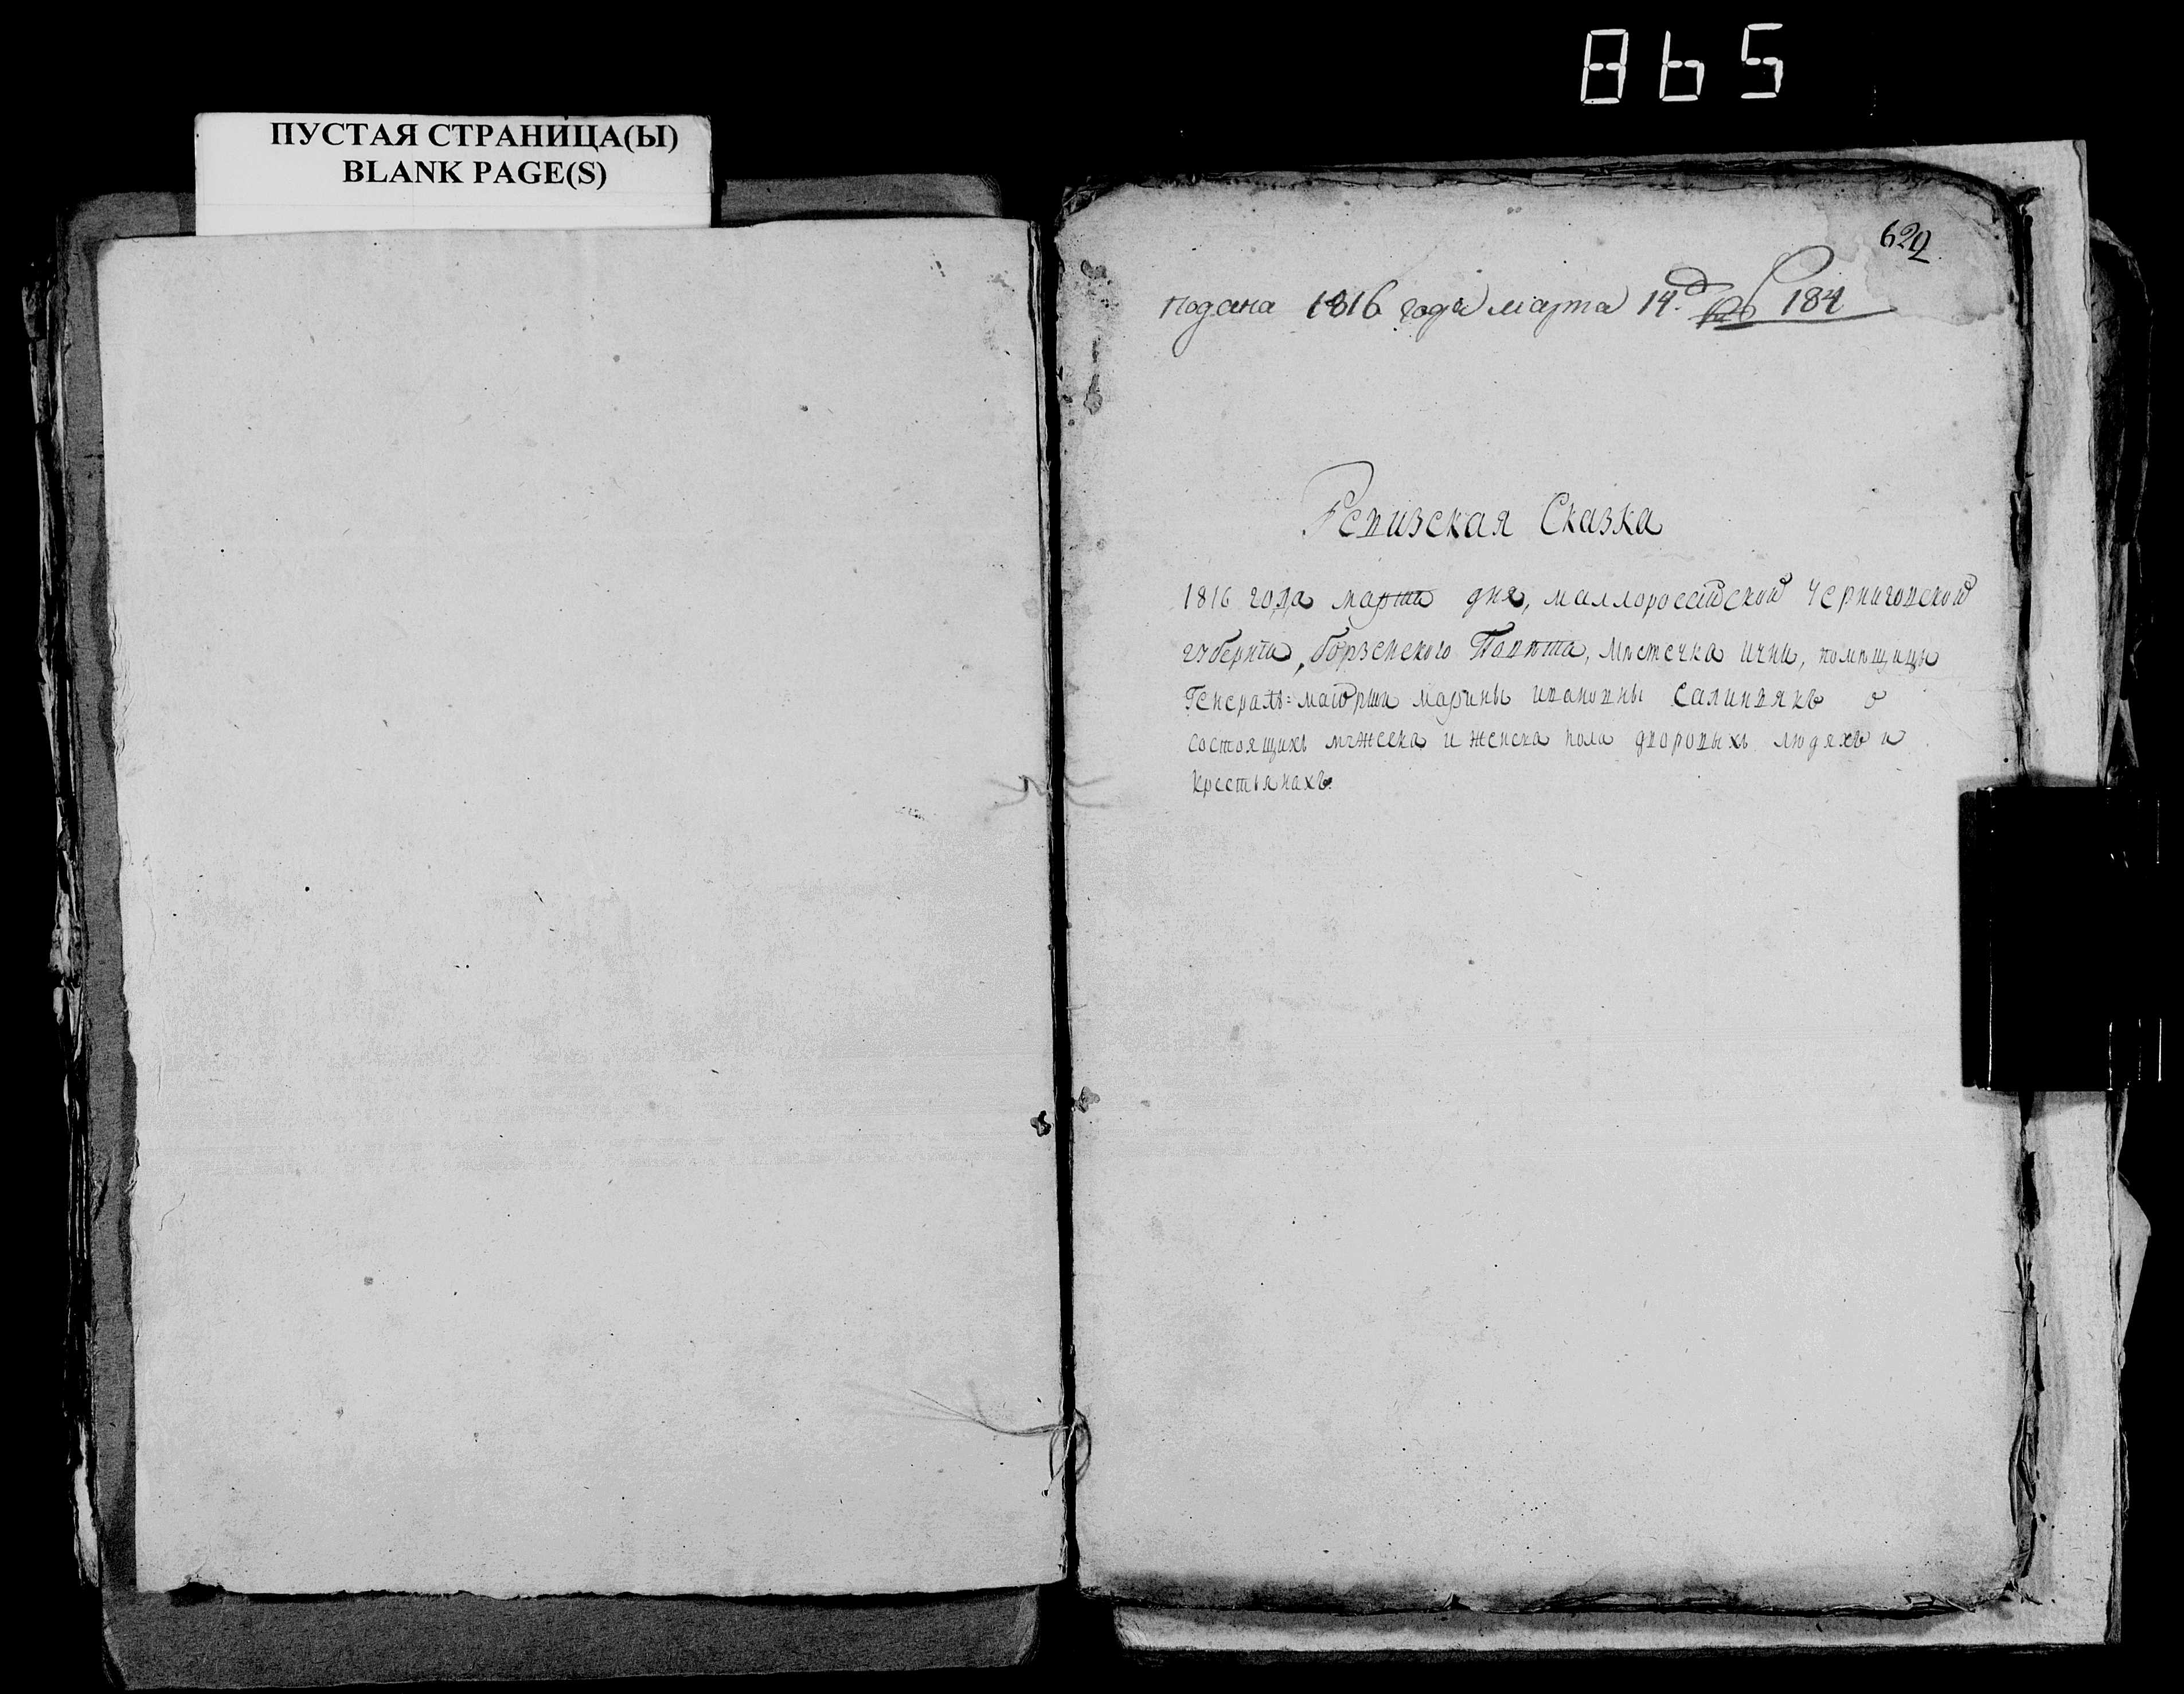 865
ПУСТАЯ СТРАНИЦА(Ы)
BLANK PAGE(S)
629
подана 1816 года марта 14д 184
Ревизская Сказка
1816 года марта дня, маллороссійской Черниговской
губерніи, борзенского Повѣта, Мѣстечка Ични, помѣщицы
Генералъ=маіорши марины ивановны Саливякъ о
состоящихъ мужеска и женска пола дворовыхъ людяхъ и
крестьянахъ